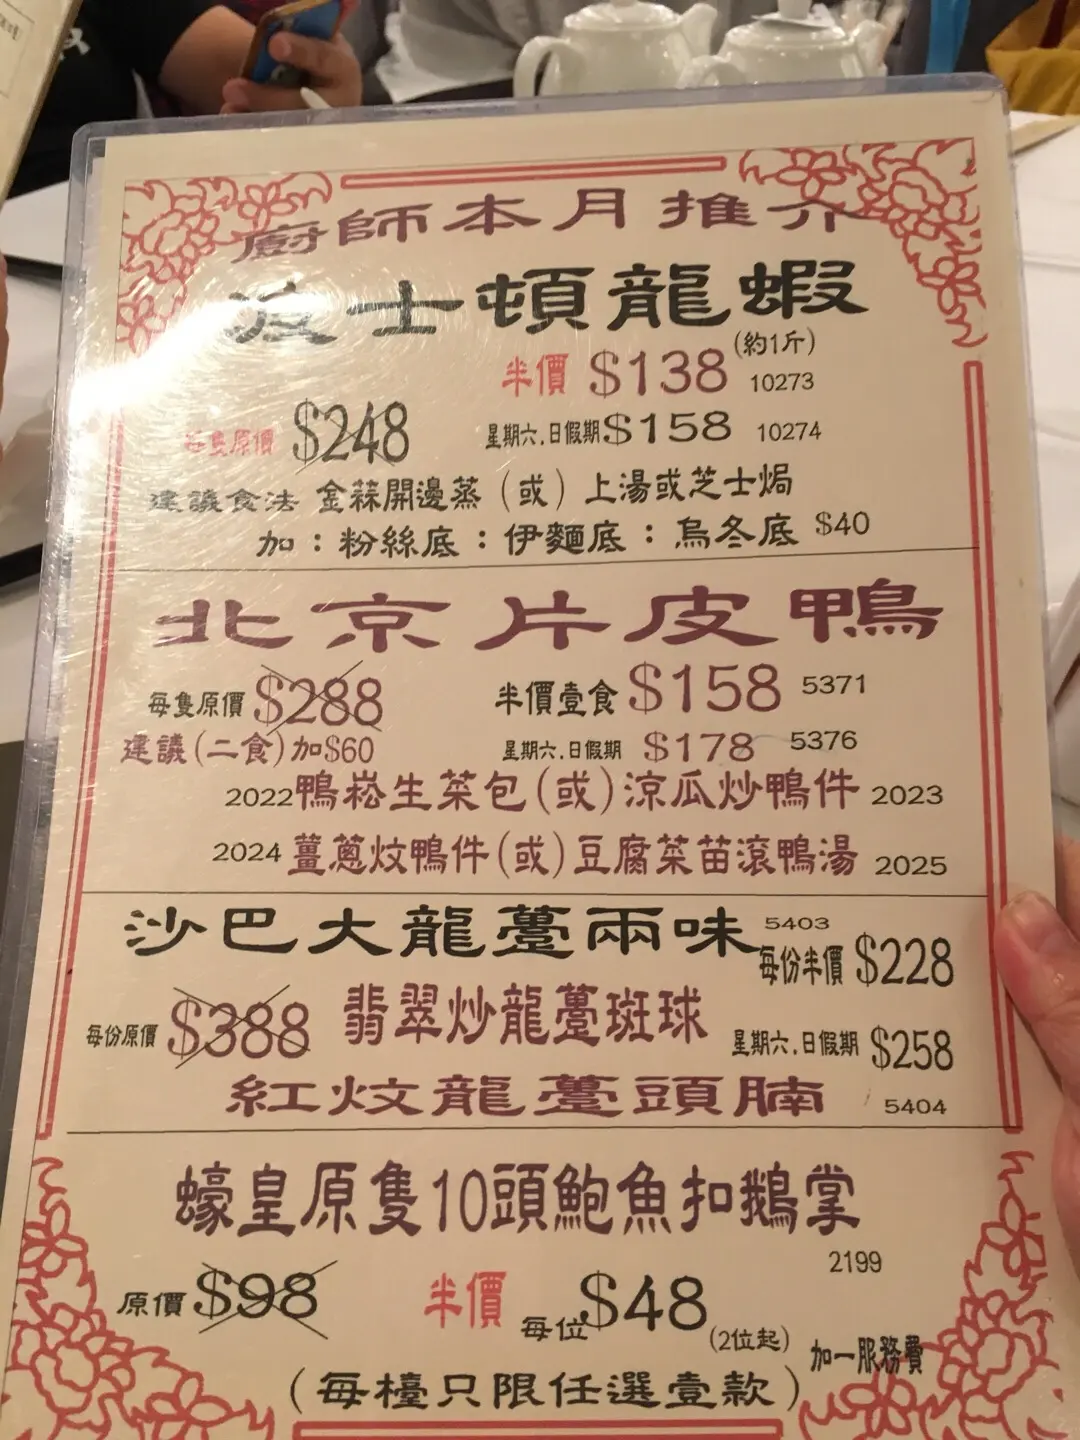 廚師本月推介
波士頓龍蝦
(約1斤)
半價 $138 10273
每隻原價 $248 星期六.日假期 $158 10274
建議食法 金蒜開邊蒸 (或) 上湯或芝士焗
加：粉絲底：伊麵底：烏冬底 $40
北京片皮鴨
每隻原價 $288 半價壹食 $158 5371
建議(二食)加$60 星期六.日假期 $178 5376
2022 鴨崧生菜包(或)涼瓜炒鴨件 2023
2024 薑蔥炆鴨件(或)豆腐菜苗滾鴨湯 2025
沙巴大龍躉兩味 5403
每份半價 $228
每份原價 $388 翡翠炒龍躉斑球
星期六.日假期 $258
紅炆龍躉頭腩 5404
蠔皇原隻10頭鮑魚扣鵝掌
2199
原價 $98 半價 每位 $48 (2位起) 加一服務費
(每檯只限任選壹款)